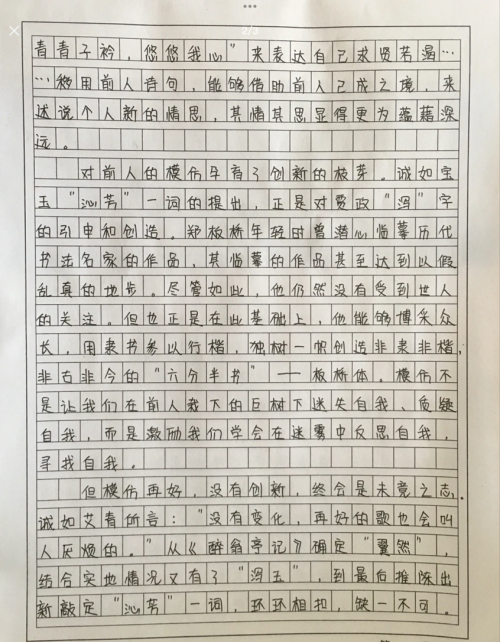 2/3
青青子衿，悠悠我心”来表达自己求贤若渴…
…移用前人诗句，能够借助前人已成之境，来
述说个人新的情思，其情其思显得更为蕴藉深
远。
对前人的模仿孕育了创新的枝芽。诚如宝
玉“沁芳”一词的提出，正是对贾政“泻”字
的引申和创造。郑板桥年轻时曾潜心临摹历代
书法名家的作品，其临摹的作品甚至达到以假
乱真的地步。尽管如此，他仍然没有受到世人
的关注。但也正是在此基础上，他能够博采众
长，用隶书参以行楷，独树一帜创造非隶非楷，
非古非今的“六分半书”——板桥体。模仿不
是让我们在前人栽下的巨树下迷失自我、质疑
自我，而是激励我们学会在迷雾中反思自我，
寻找自我。
但模仿再好，没有创新，终会是未竟之志。
诚如艾青所言：“没有变化，再好的歌也会叫
人厌烦的。”从《醉翁亭记》确定“翼然”，
结合实地情况又有了“泻玉”，到最后推陈出
新敲定“沁芳”一词，环环相扣，缺一不可。